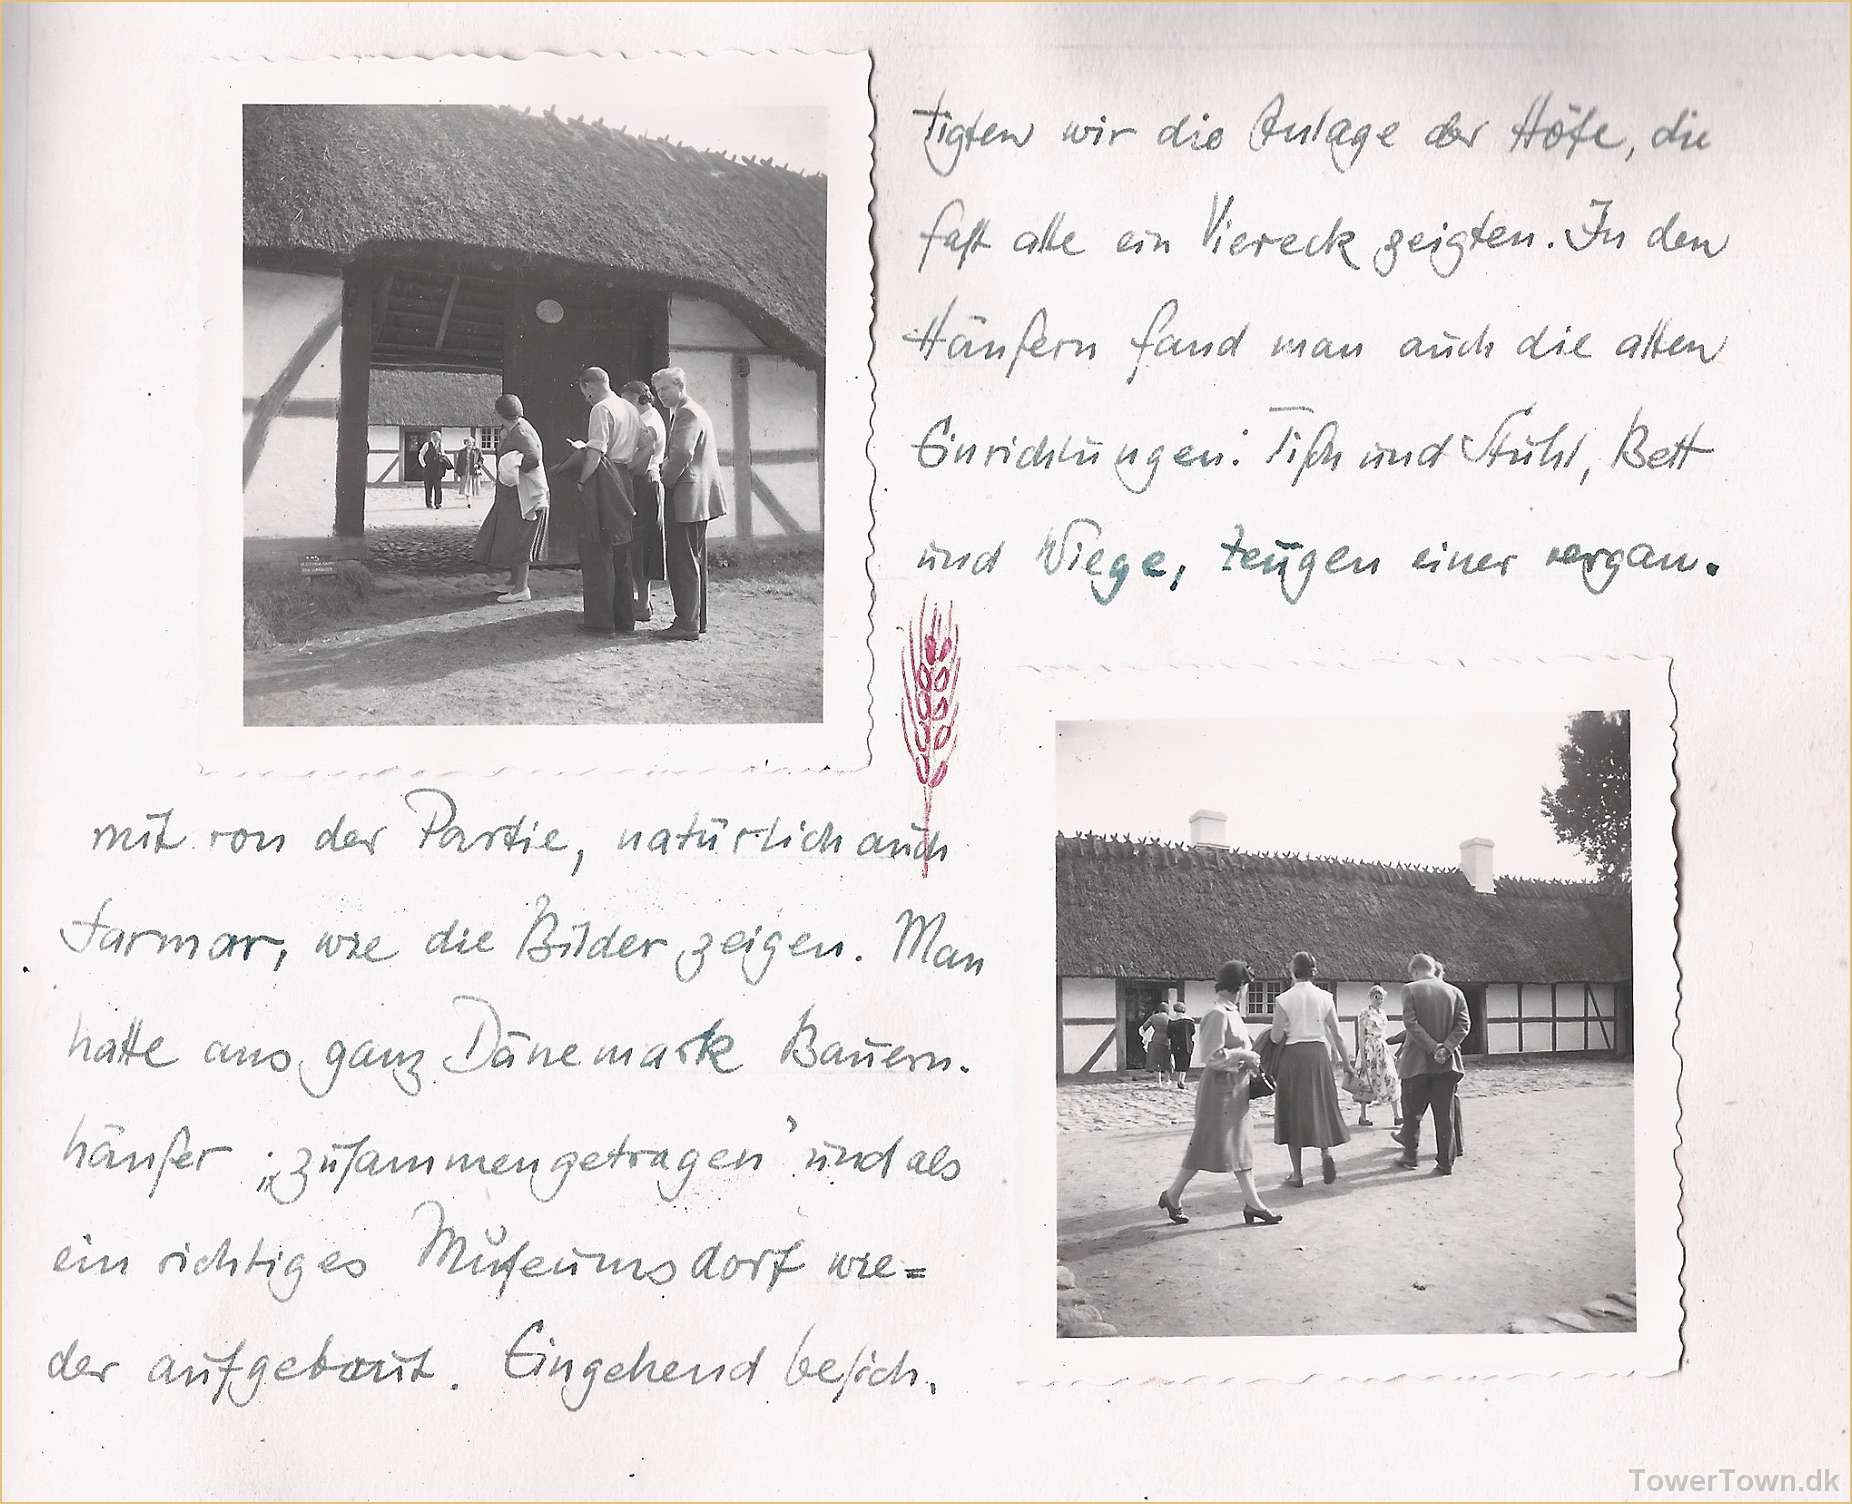 mit von der Partie, natürlich auch
Farmar, wie die Bilder zeigen. Man
hatte aus ganz Dänemark Bauern-
häuser „zusammengetragen" und als
ein richtiges Museumsdorf wie=
der aufgebaut. Eingehend besich-
tigten wir die Anlage der Höfe, die
fast alle ein Viereck zeigten. In den
Häusern fand man auch die alten
Einrichtungen: Tisch und Stuhl, Bett
und Wiege, Zeugen einer vergan-
TowerTown.dk